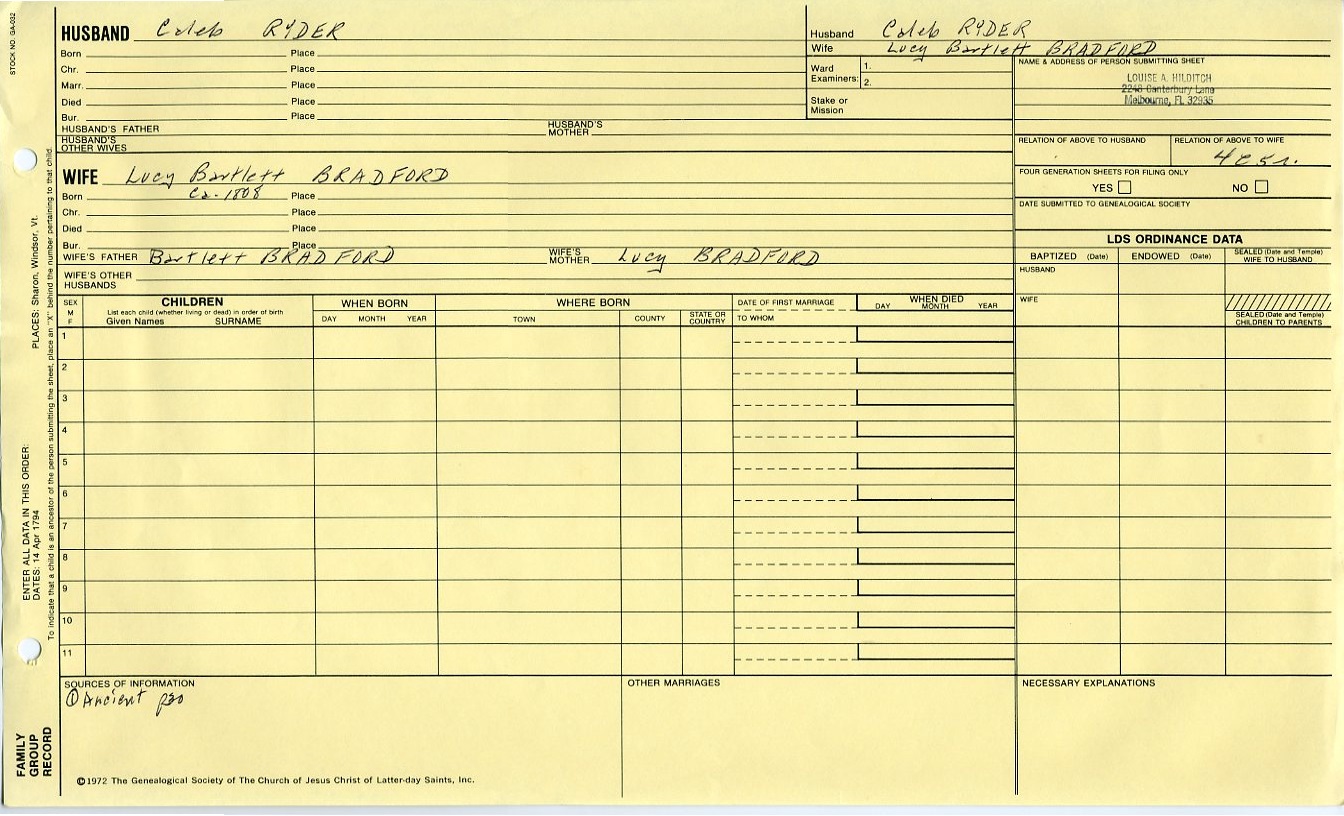 STOCK NO. GA-032
HUSBAND Caleb RYDER
Born Place
Chr. Place
Marr. Place
Died Place
Bur. Place
HUSBAND'S FATHER HUSBAND'S MOTHER
HUSBAND'S OTHER WIVES
Husband Caleb RYDER
Wife Lucy Bartlett BRADFORD
Ward Examiners: 1.
2.
Stake or Mission
NAME & ADDRESS OF PERSON SUBMITTING SHEET
LOUISE A. HILDITCH
2248 Canterbury Lane
Melbourne, FL 32935
RELATION OF ABOVE TO HUSBAND RELATION OF ABOVE TO WIFE
FOUR GENERATION SHEETS FOR FILING ONLY
YES NO
DATE SUBMITTED TO GENEALOGICAL SOCIETY
WIFE Lucy Bartlett BRADFORD
Born Ca-1808 Place
Chr. Place
Died Place
Bur. Place
WIFE'S FATHER Bartlett BRADFORD WIFE'S MOTHER Lucy BRADFORD
WIFE'S OTHER HUSBANDS
LDS ORDINANCE DATA
BAPTIZED (Date) ENDOWED (Date) SEALED (Date and Temple) WIFE TO HUSBAND
HUSBAND
WIFE
SEALED (Date and Temple) CHILDREN TO PARENTS
SEX M F
CHILDREN
List each child (whether living or dead) in order of birth
Given Names SURNAME
WHEN BORN
DAY MONTH YEAR
WHERE BORN
TOWN COUNTY STATE OR COUNTRY
DATE OF FIRST MARRIAGE
TO WHOM
WHEN DIED
DAY MONTH YEAR
1
2
3
4
5
6
7
8
9
10
11
SOURCES OF INFORMATION
① Ancient p30
OTHER MARRIAGES
NECESSARY EXPLANATIONS
©1972 The Genealogical Society of The Church of Jesus Christ of Latter-day Saints, Inc.
FAMILY GROUP RECORD
ENTER ALL DATA IN THIS ORDER:
DATES: 14 Apr 1794 PLACES: Sharon, Windsor, Vt.
To indicate that a child is an ancestor of the person submitting the sheet, place an "X" behind the number pertaining to that child.